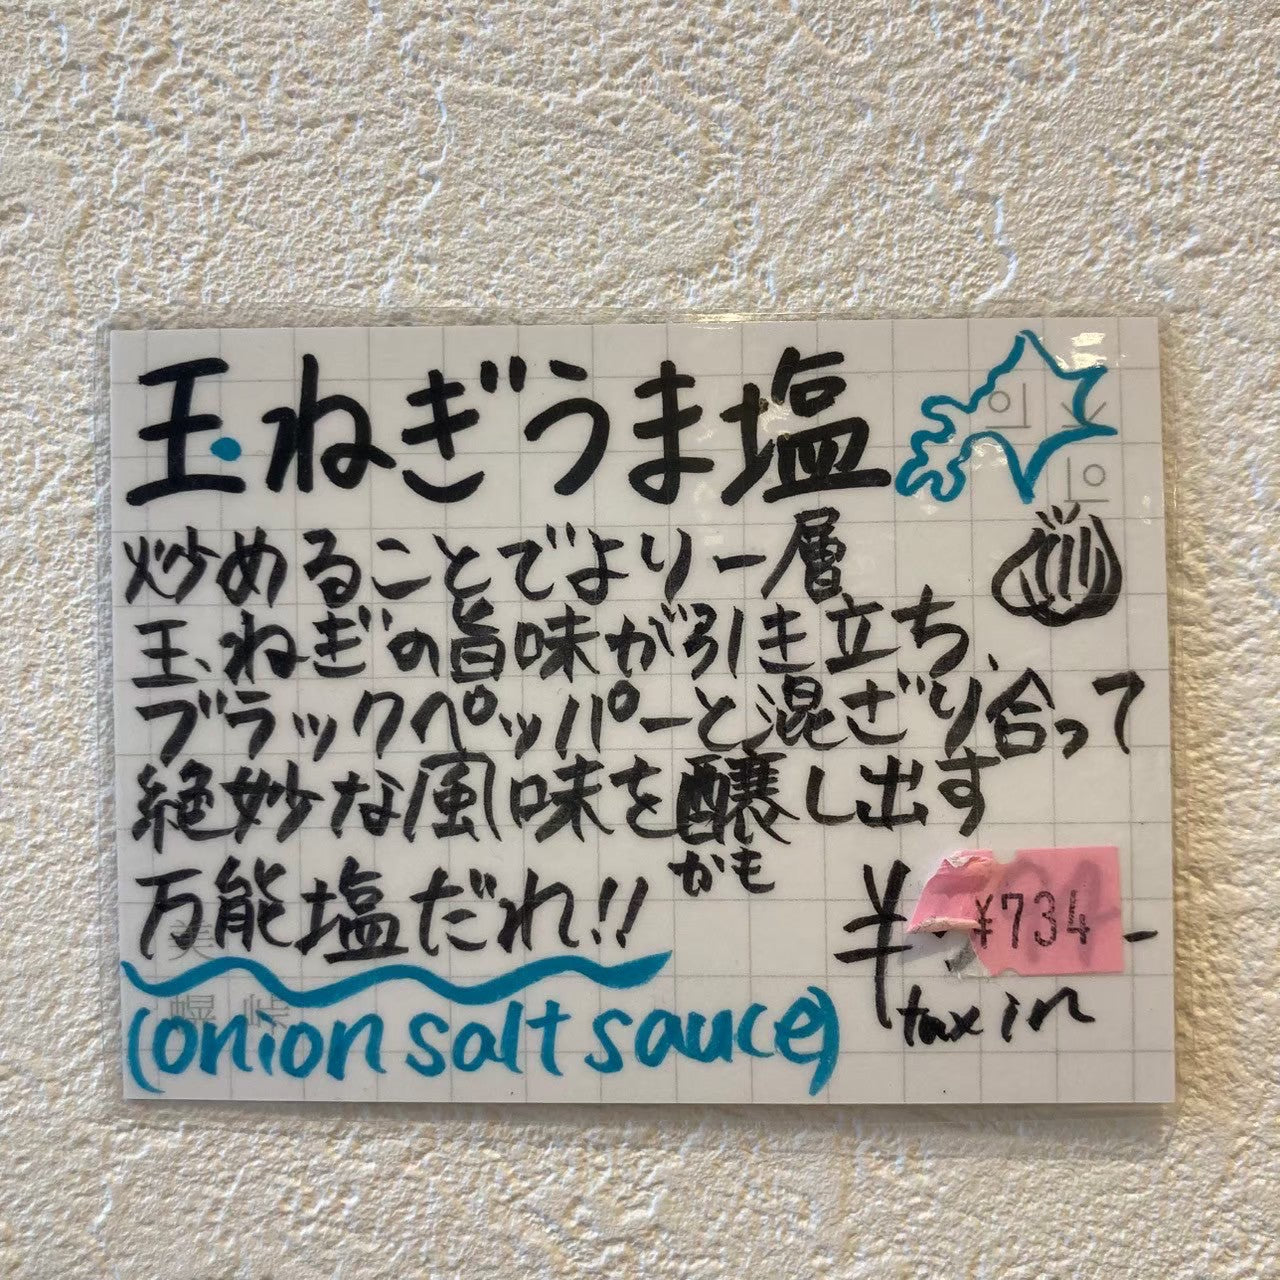 玉ねぎうま塩
炒めることでより一層
玉ねぎの旨味が引き立ち、
ブラックペッパーと混ざり合って
絶妙な風味を醸し出す
かも
万能塩だれ!!
¥734
tax in
(onion salt sauce)